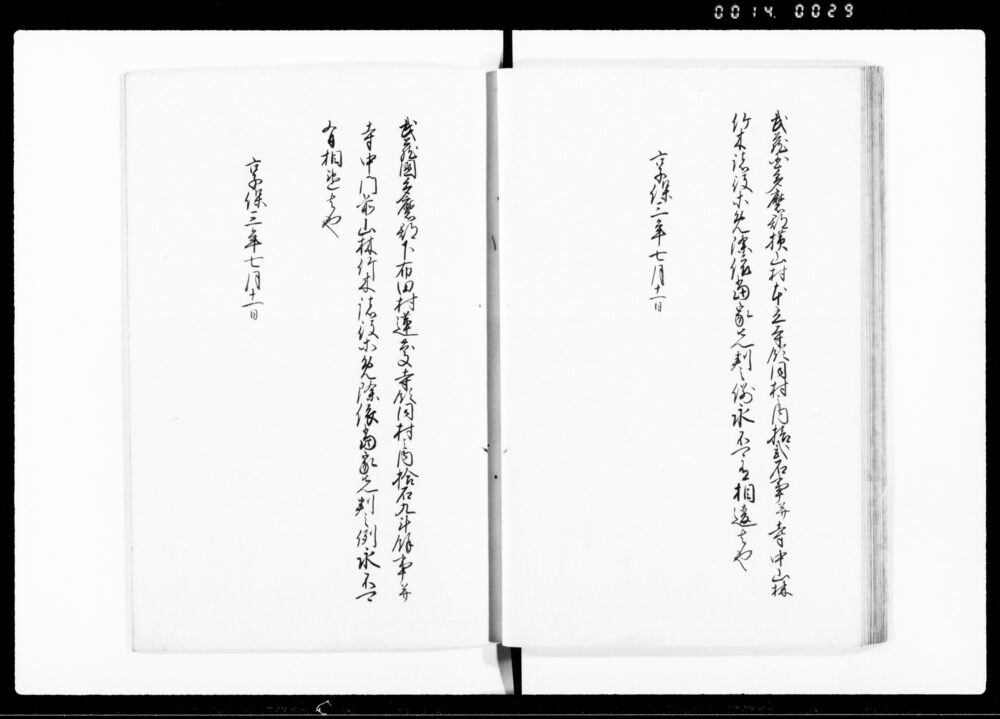 0014 0029
武蔵国多磨郡横山村本立寺領同村之内拾弐石事并寺中山林
竹木諸役等免除依当家先判之例永不可有相違者也
享保三年七月十一日
武蔵國多磨郡下布田村蓮慶寺領同村之内拾石九斗餘事并
寺中門前山林竹木諸役等免除依當家先判之例永不可
有相違者也
享保三年七月十一日